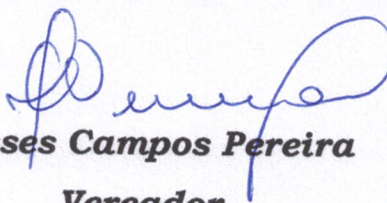 ses Campos Pereira
Vereador